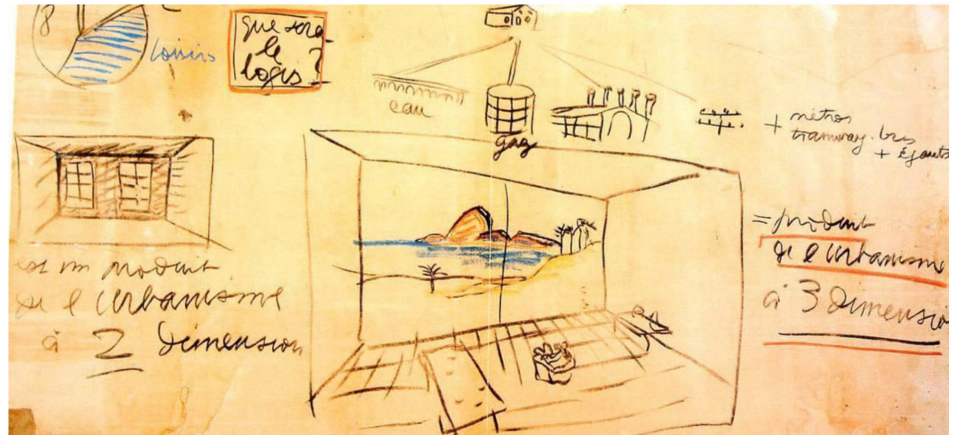 8
loisirs
que sera
le
logis?
eau
gaz
+ métros
tramway. bus
+ égouts
est un produit
de l'urbanisme
à 2 dimension
= produit
de l'urbanisme
à 3 dimensio